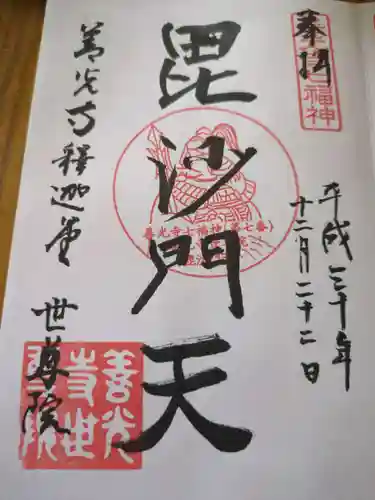 奉拝
七福神
平成三十年
十二月二十二日
毘沙門天
善光寺七福神(第七番)
善光寺釋迦堂
世尊院
善光
寺世
尊院